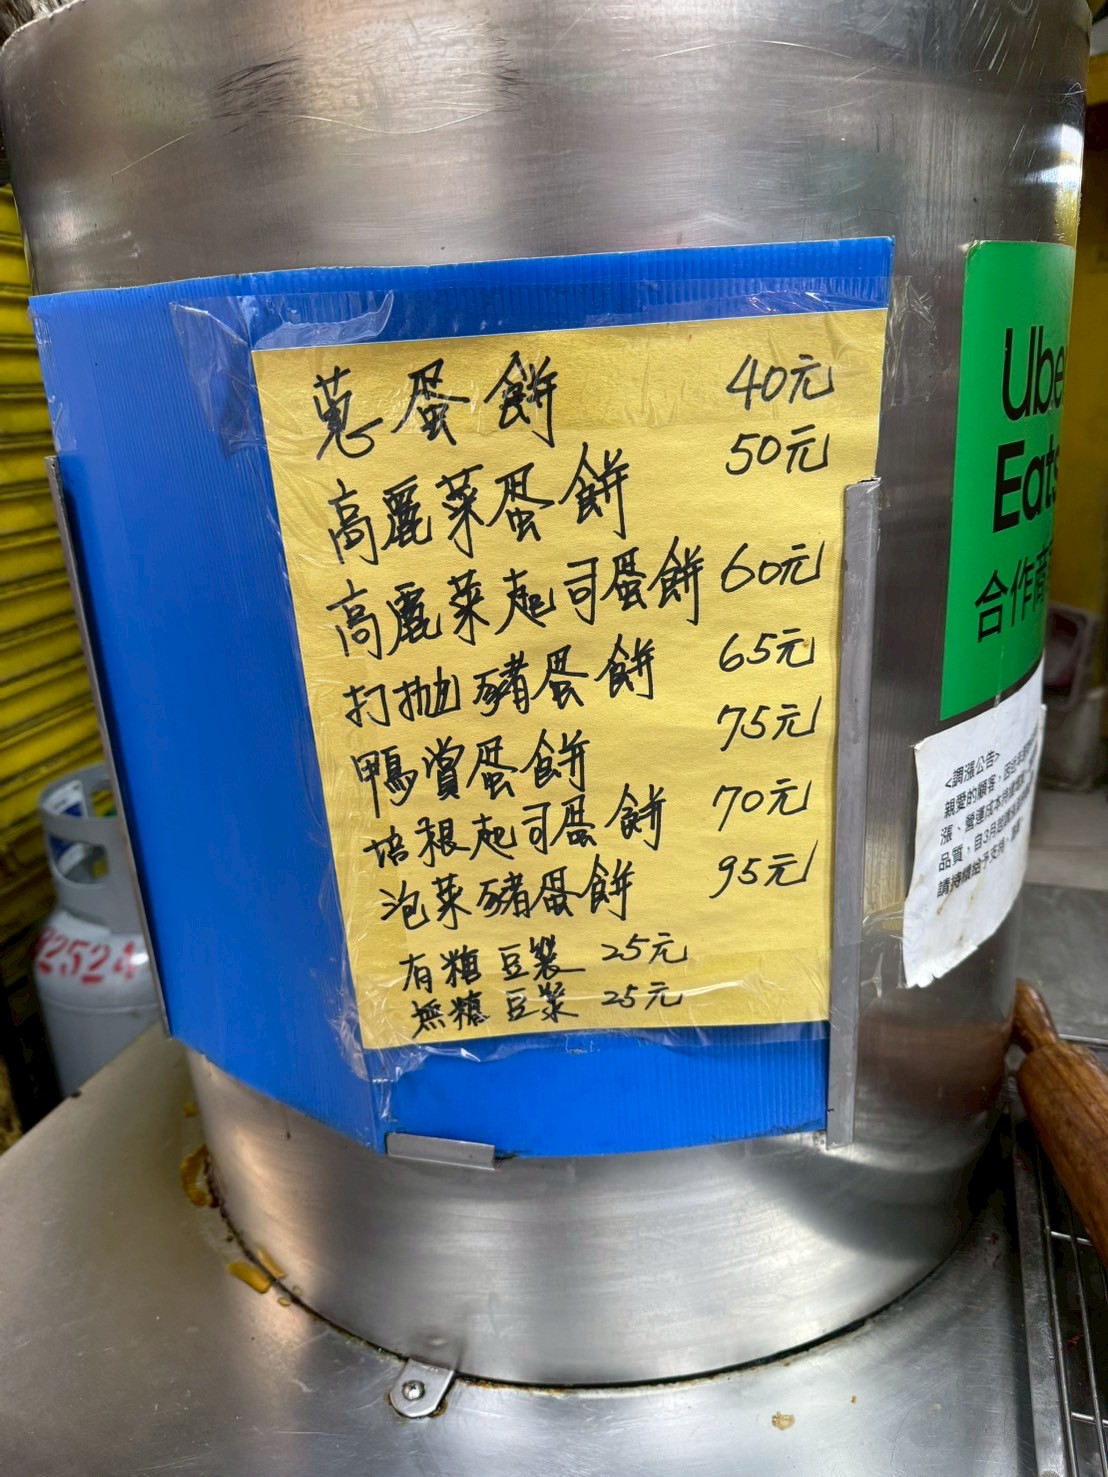 蔥蛋餅 40元
高麗菜蛋餅 50元
高麗菜起司蛋餅 60元
打拋豬蛋餅 65元
鴨賞蛋餅 75元
培根起司蛋餅 70元
泡菜豬蛋餅 95元
有糖豆漿 25元
無糖豆漿 25元
Uber
Eats
合作商
<調漲公告>
親愛的顧客，因
漲、營運成本持續
品質，自3月起調
請持續給予支持，謝謝
8252A